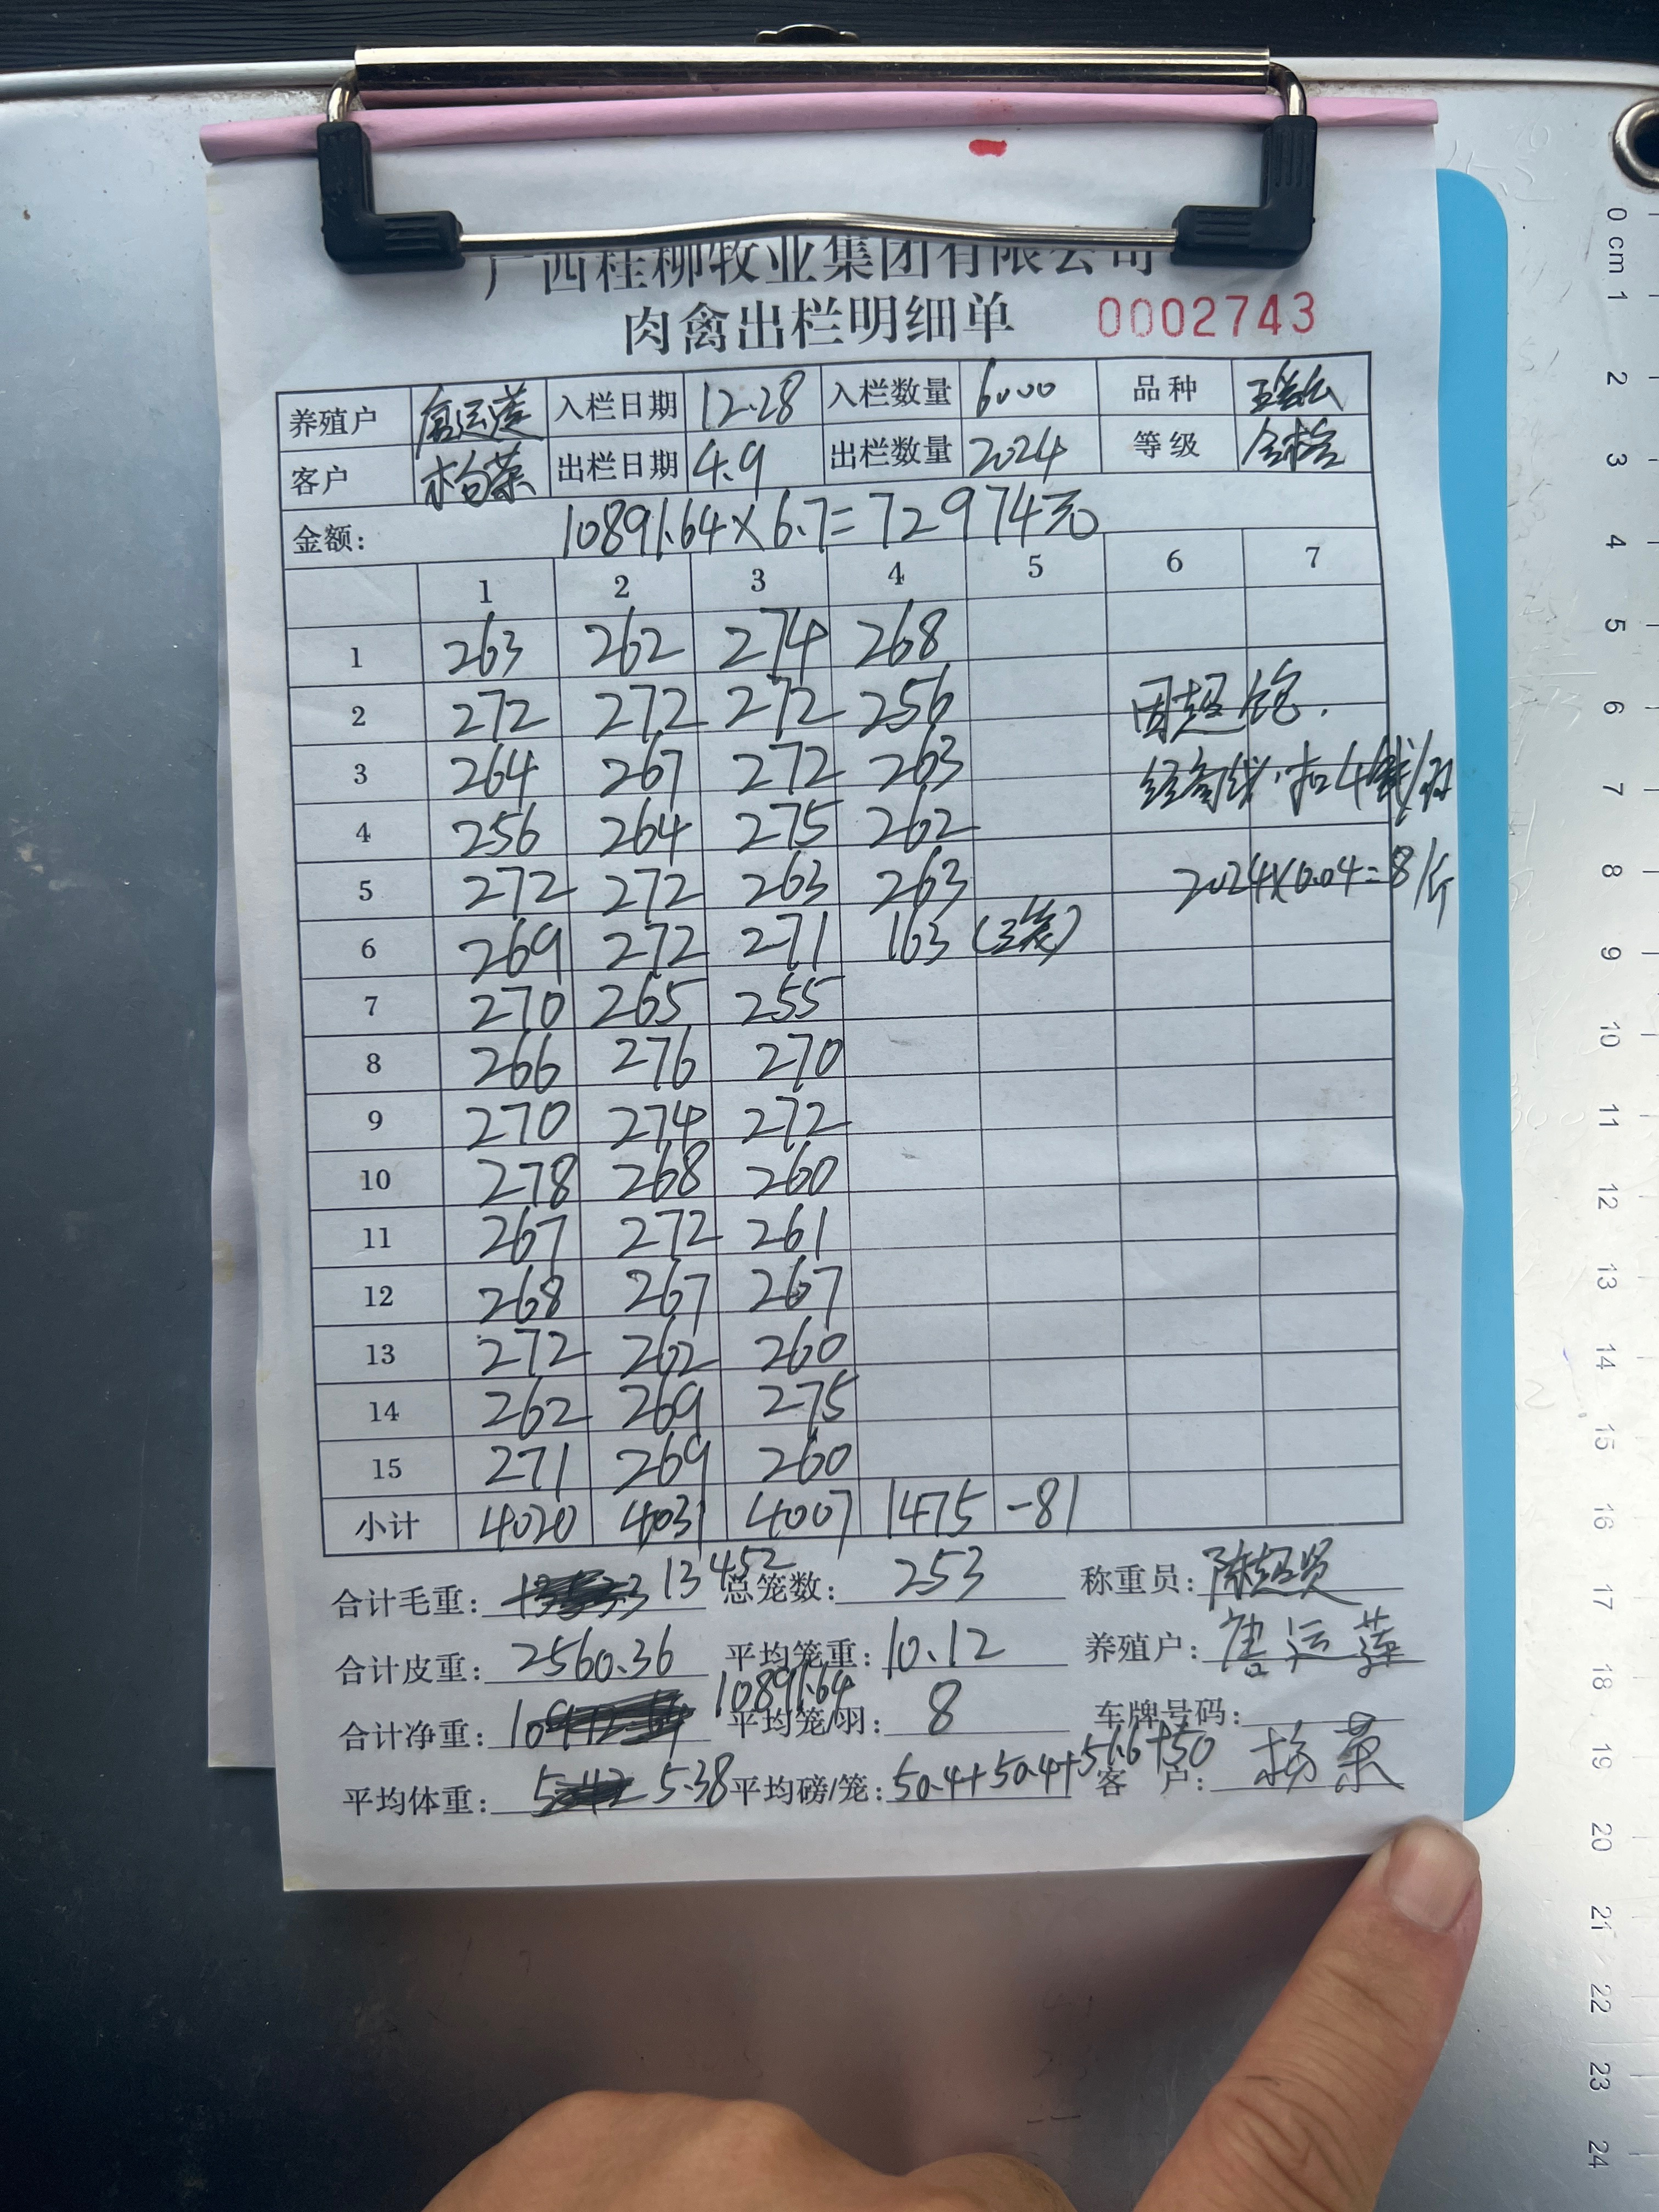 广西桂柳牧业集团有限公司
肉禽出栏明细单 0002743
养殖户 唐运莲 入栏日期 12.28 入栏数量 6000 品种
客户 杨荣 出栏日期 4.9 出栏数量 2024 等级
金额： 10891.64×6.7=72974元
1 2 3 4 5 6 7
1 263 262 274 268
2 272 272 272 256 因超饱.
3 264 267 272 263
4 256 264 275 262
5 272 272 263 263 2024×0.04=81斤
6 269 272 271 163 (3笼)
7 270 265 255
8 266 276 270
9 270 274 272
10 278 268 260
11 267 272 261
12 268 267 267
13 272 262 260
14 262 269 275
15 271 269 260
小计 4020 4031 4007 1475 -81
合计毛重： 13452 总笼数： 253 称重员： 陈超贤
合计皮重： 2560.36 平均笼重： 10.12 养殖户： 唐运莲
合计净重： 10891.64 平均笼/羽： 8 车牌号码：
平均体重： 5.38 平均磅/笼： 50.4+50.4+51.6+50 客户： 杨荣
0 cm 1 2 3 4 5 6 7 8 9 10 11 12 13 14 15 16 17 18 19 20 21 22 23 24